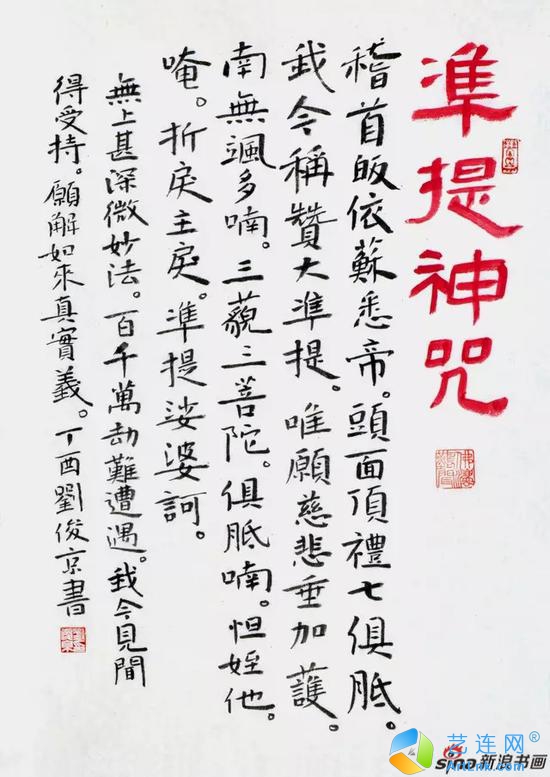 準提神咒
稽首皈依蘇悉帝。頭面頂禮七俱胝。
我今稱贊大準提。唯願慈悲垂加護。
南無颯多喃。三藐三菩陀。俱胝喃。怛姪他。
唵。折戾主戾。準提娑婆訶。
無上甚深微妙法。百千萬劫難遭遇。我今見聞
得受持。願解如來真實義。丁酉劉俊京書
艺连网
sina新浪书画